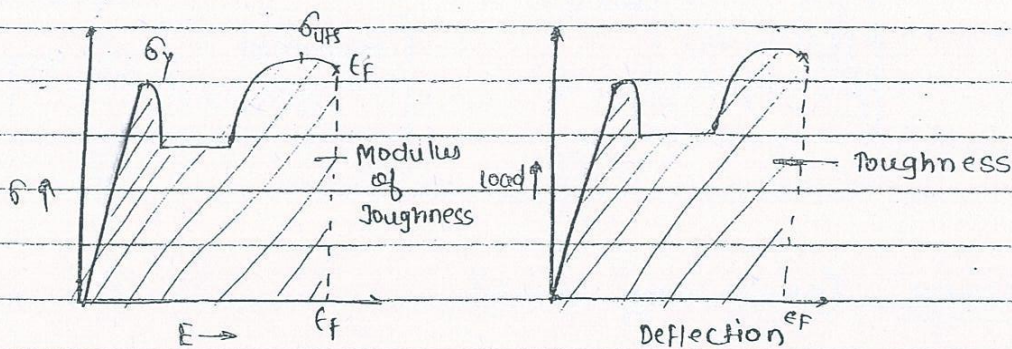 σy
σuts
εF
Modulus
of
Toughness
σ ↑
E →
εf
load ↑
Toughness
Deflection
eF